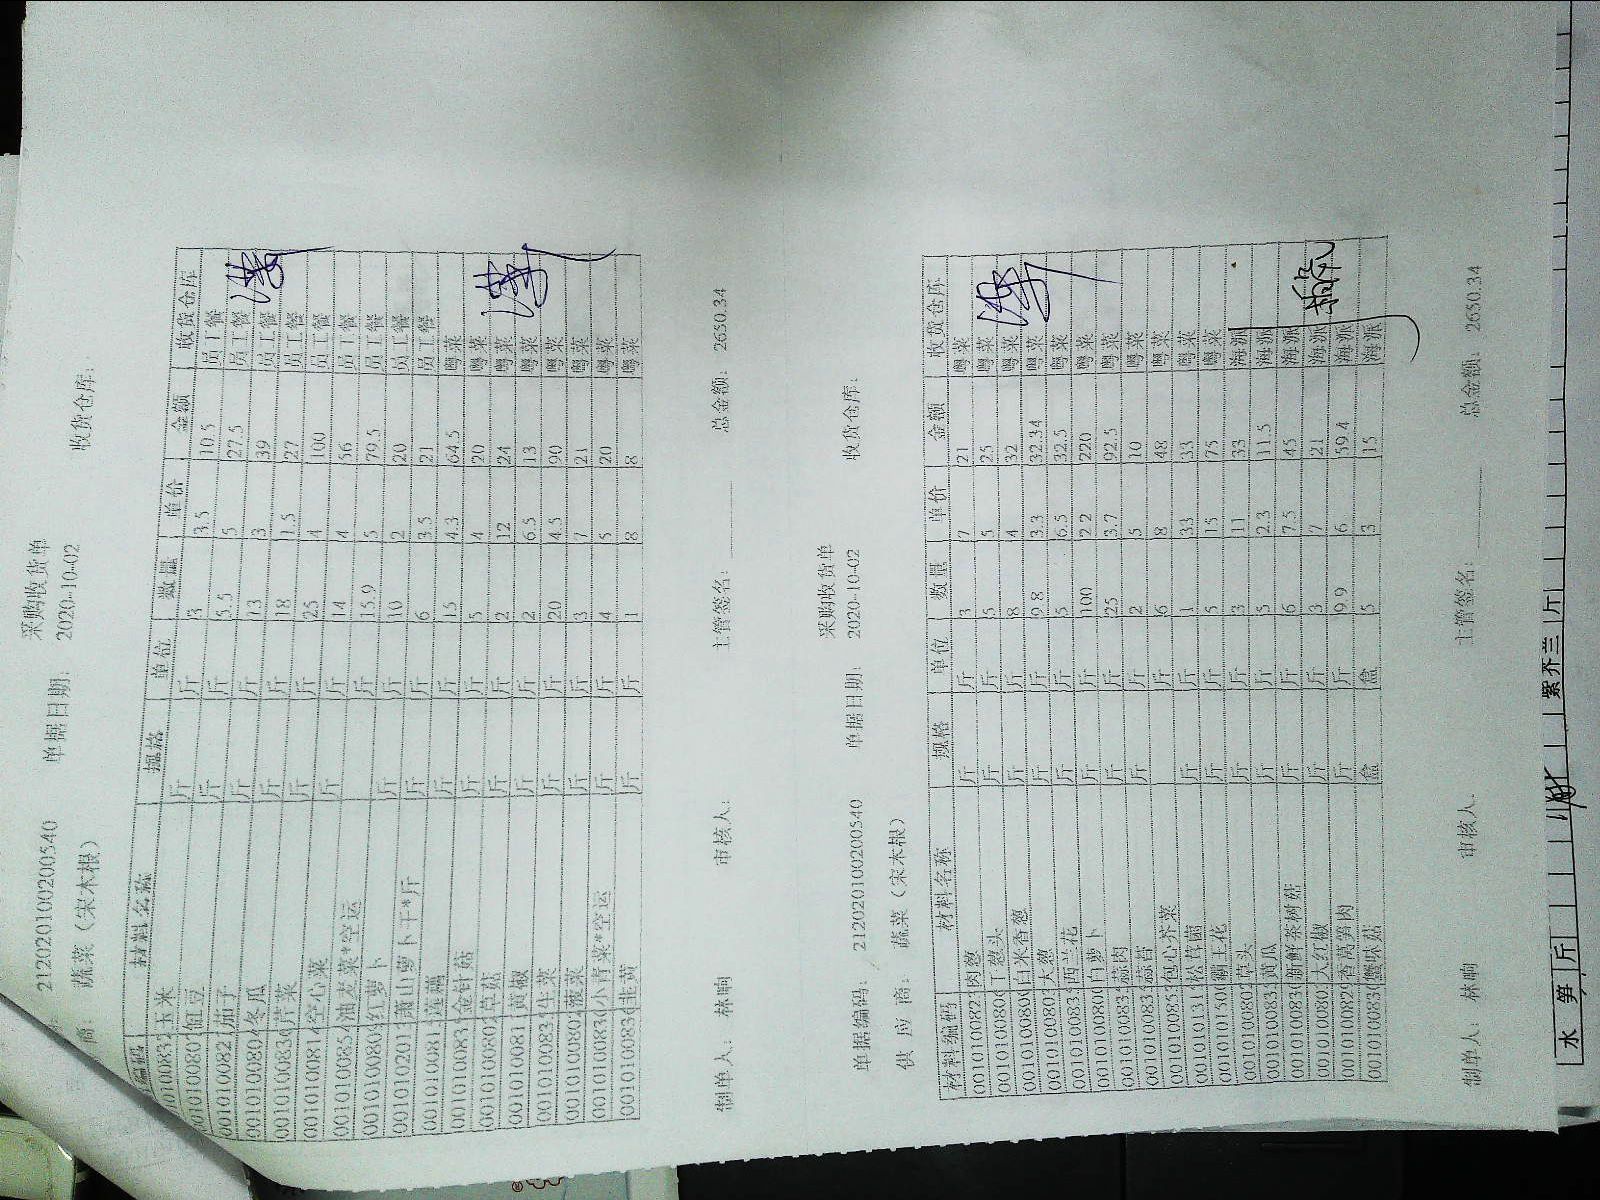 采购收货单
212020100200540 单据日期: 2020-10-02 收货仓库:
商: 蔬菜（宋木根）
编码 材料名称 规格 单位 数量 单价 金额 收货仓库
玉米 斤 斤 3 3.5 10.5 员工餐
0010100801 豇豆 斤 斤 5.5 5 27.5 员工餐
0010100821 茄子 斤 斤 13 3 39 员工餐
0010100804 冬瓜 斤 斤 18 1.5 27 员工餐
0010100836 芹菜 斤 斤 25 4 100 员工餐
0010100814 空心菜 斤 斤 14 4 56 员工餐
0010100854 油麦菜*空运 斤 15.9 5 79.5 员工餐
0010100809 红萝卜 斤 斤 10 2 20 员工餐
0010102011 萧山萝卜干*斤 斤 斤 6 3.5 21 员工餐
0010100814 莲藕 斤 斤 15 4.3 64.5 粤菜
0010100831 金针菇 斤 斤 5 4 20 粤菜
0010100802 草菇 斤 斤 2 12 24 粤菜
001010081 黄椒 斤 斤 2 6.5 13 粤菜
0010100834 生菜 斤 斤 20 4.5 90 粤菜
0010100802 菠菜 斤 斤 3 7 21 粤菜
0010100830 小青菜*空运 斤 斤 4 5 20 粤菜
0010100836 韭黄 斤 斤 1 8 8 粤菜
制单人: 林响 审核人: 主管签名: 总金额: 2630.34
采购收货单
单据编码: 212020100200540 单据日期: 2020-10-02 收货仓库:
供应商: 蔬菜（宋木根）
材料编码 材料名称 规格 单位 数量 单价 金额 收货仓库
0010100823 肉葱 斤 斤 3 7 21 粤菜
0010100806 丁葱头 斤 斤 5 5 25 粤菜
0010100800 白米香葱 斤 斤 8 4 32 粤菜
0010100803 大葱 斤 斤 9.8 3.3 32.34 粤菜
0010100835 西兰花 斤 斤 5 6.5 32.5 粤菜
0010100800 白萝卜 斤 斤 100 2.2 220 粤菜
0010100834 蒜肉 斤 斤 25 3.7 92.5 粤菜
0010100833 蒜苔 斤 斤 2 5 10 粤菜
0010100853 包心芥菜 斤 6 8 48 粤菜
0010101311 松茸菌 斤 斤 1 33 33 粤菜
0010101500 霸王花 斤 斤 5 15 75 粤菜
0010100802 草头 斤 斤 3 11 33 海派
0010100831 黄瓜 斤 斤 5 2.3 11.5 海派
0010100830 海鲜茶树菇 斤 斤 6 7.5 45 海派
0010100801 大红椒 斤 斤 3 7 21 海派
0010100829 香莴笋肉 斤 斤 9.9 6 59.4 海派
0010100830 蟹味菇 盒 盒 5 3 15 海派
制单人: 林响 审核人: 主管签名: 总金额: 2630.34
水笋 斤 紫芥兰 斤